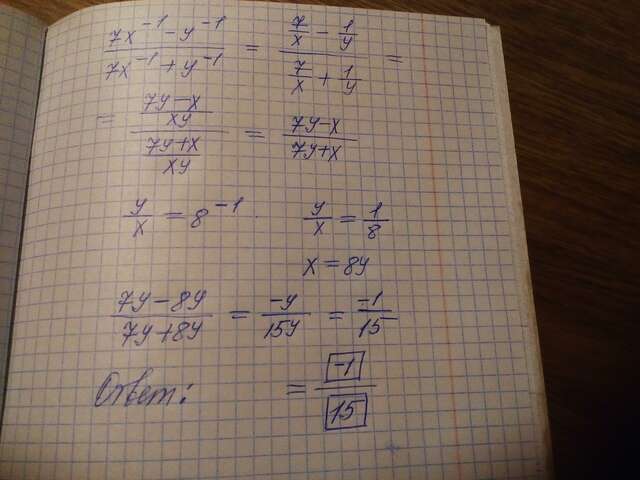 (7x⁻¹ - y⁻¹)/(7x⁻¹ + y⁻¹) = (7/x - 1/y)/(7/x + 1/y) =
= ((7y-x)/xy)/((7y+x)/xy) = (7y-x)/(7y+x)
y/x = 8⁻¹. y/x = 1/8
x = 8y
(7y-8y)/(7y+8y) = -y/15y = -1/15
Ответ: = -1/15